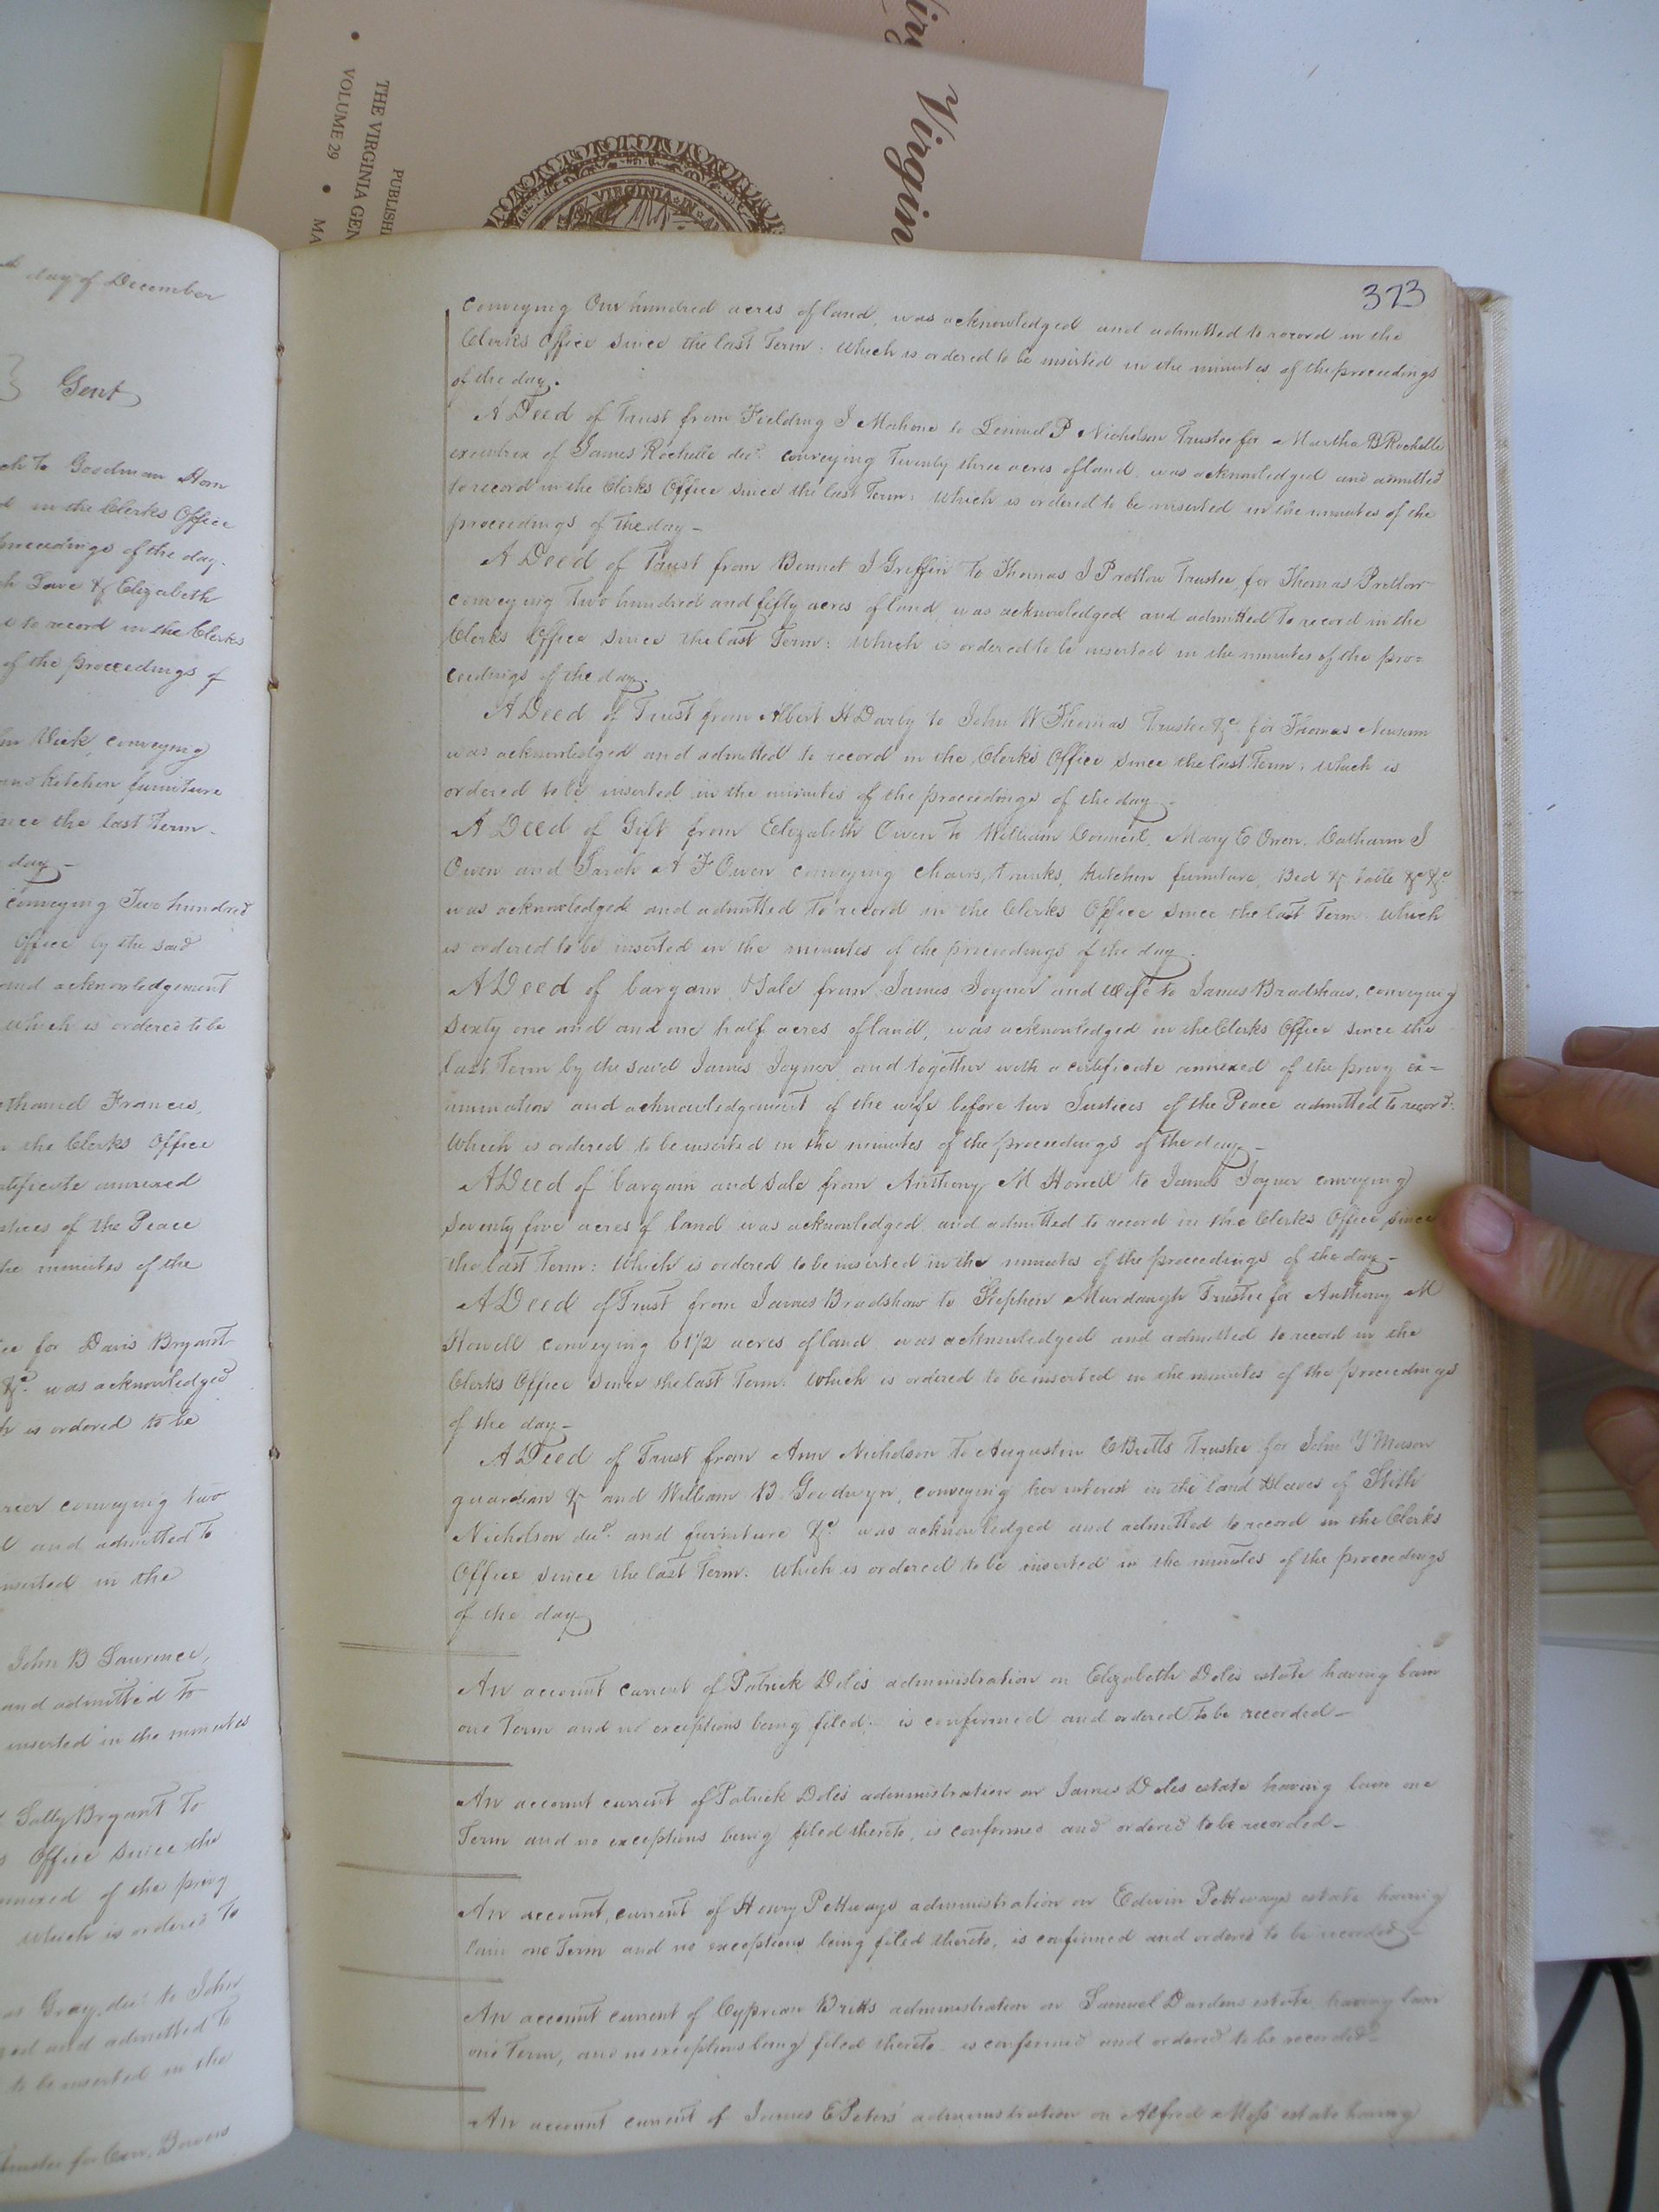 Virgin
PUBLISH
THE VIRGINIA GEN
VOLUME 29 • MA
VIRGINIA IN
day of December
Gent
to Goodman Horn
in the Clerks Office
proceedings of the day.
Love & Elizabeth
to record in the Clerks
of the proceedings of
Vick, conveying
kitchen furniture
the last Term.
day
conveying Two hundred
Office by the said
and acknowledgement
which is ordered to be
Francis,
the Clerks Office
annexed
of the Peace
minutes of the
for Davis Bryant
&c. was acknowledged
is ordered to be
conveying two
and admitted to
inserted in the
John B Lawrence,
and admitted to
inserted in the minutes
Sally Bryant to
Office since the
of the privy
which is ordered to
Gray, decd. to John
and admitted to
to be inserted in the
for Bowers
373
conveying One hundred acres of land, was acknowledged and admitted to record in the
Clerks Office since the last Term. Which is ordered to be inserted in the minutes of the proceedings
of the day.
A Deed of Trust from Fielding J Mahone to Lemuel P Nicholson Trustee for Martha B Rochelle
executrix of James Rochelle decd. conveying Twenty three acres of land, was acknowledged and admitted
to record in the Clerks Office since the last Term: Which is ordered to be inserted in the minutes of the
proceedings of the day –
A Deed of Trust from Bennet J Griffin to Thomas J Pretlow Trustee, for Thomas Pretlow
conveying Two hundred and fifty acres of land, was acknowledged and admitted to record in the
Clerks Office since the last Term: Which is ordered to be inserted in the minutes of the pro=
ceedings of the day.
A Deed of Trust from Albert H Darby to John W Thomas Trustee &c. for Thomas Newsum
was acknowledged and admitted to record in the Clerks Office since the last Term: which is
ordered to be inserted in the minutes of the proceedings of the day.
A Deed of Gift from Elizabeth Owen to William Council, Mary E Owen, Catharine J
Owen and Sarah A F Owen conveying Chairs, trunks, kitchen furniture, Bed & table &c &c.
was acknowledged and admitted to record in the Clerks Office since the last Term. Which
is ordered to be inserted in the minutes of the proceedings of the day.
A Deed of bargain & Sale from James Joyner and wife to James Bradshaw, conveying
Sixty one and and one half acres of land, was acknowledged in the Clerks Office since the
last Term by the said James Joyner, and together with a certificate annexed of the privy ex=
amination and acknowledgement of the wife before two Justices of the Peace admitted to record.
Which is ordered to be inserted in the minutes of the proceedings of the day –
A Deed of bargain and Sale from Anthony M Howell to James Joyner conveying
Seventy five acres of land was acknowledged and admitted to record in the Clerks Office since
the last Term: Which is ordered to be inserted in the minutes of the proceedings of the day –
A Deed of Trust from James Bradshaw to Stephen Murdaugh Trustee for Anthony M
Howell conveying 61 1/2 acres of land was acknowledged and admitted to record in the
Clerks Office since the last Term. Which is ordered to be inserted in the minutes of the proceedings
of the day –
A Deed of Trust from Ann Nicholson to Augustin C Butts Trustee for John Y Mason
guardian & and William B Goodwyn, conveying her interest in the land Slaves of Stith
Nicholson decd. and furniture &c. was acknowledged and admitted to record in the Clerks
Office since the last Term. Which is ordered to be inserted in the minutes of the proceedings
of the day
An account current of Patrick Doles administration on Elizabeth Doles estate having lain
one Term and no exceptions being filed, is confirmed and ordered to be recorded –
An account current of Patrick Doles administration on James Doles estate having lain one
Term and no exceptions being filed thereto, is confirmed and ordered to be recorded –
An account, current of Henry Pettways administration on Edwin Pettways estate having
lain one Term and no exceptions being filed thereto, is confirmed and ordered to be recorded –
An account current of Cyprian administration on Samuel Dardens estate having lain
one Term, and no exceptions being filed thereto is confirmed and ordered to be recorded –
An account current of James E Peters' administration on Alfred Moss estate having